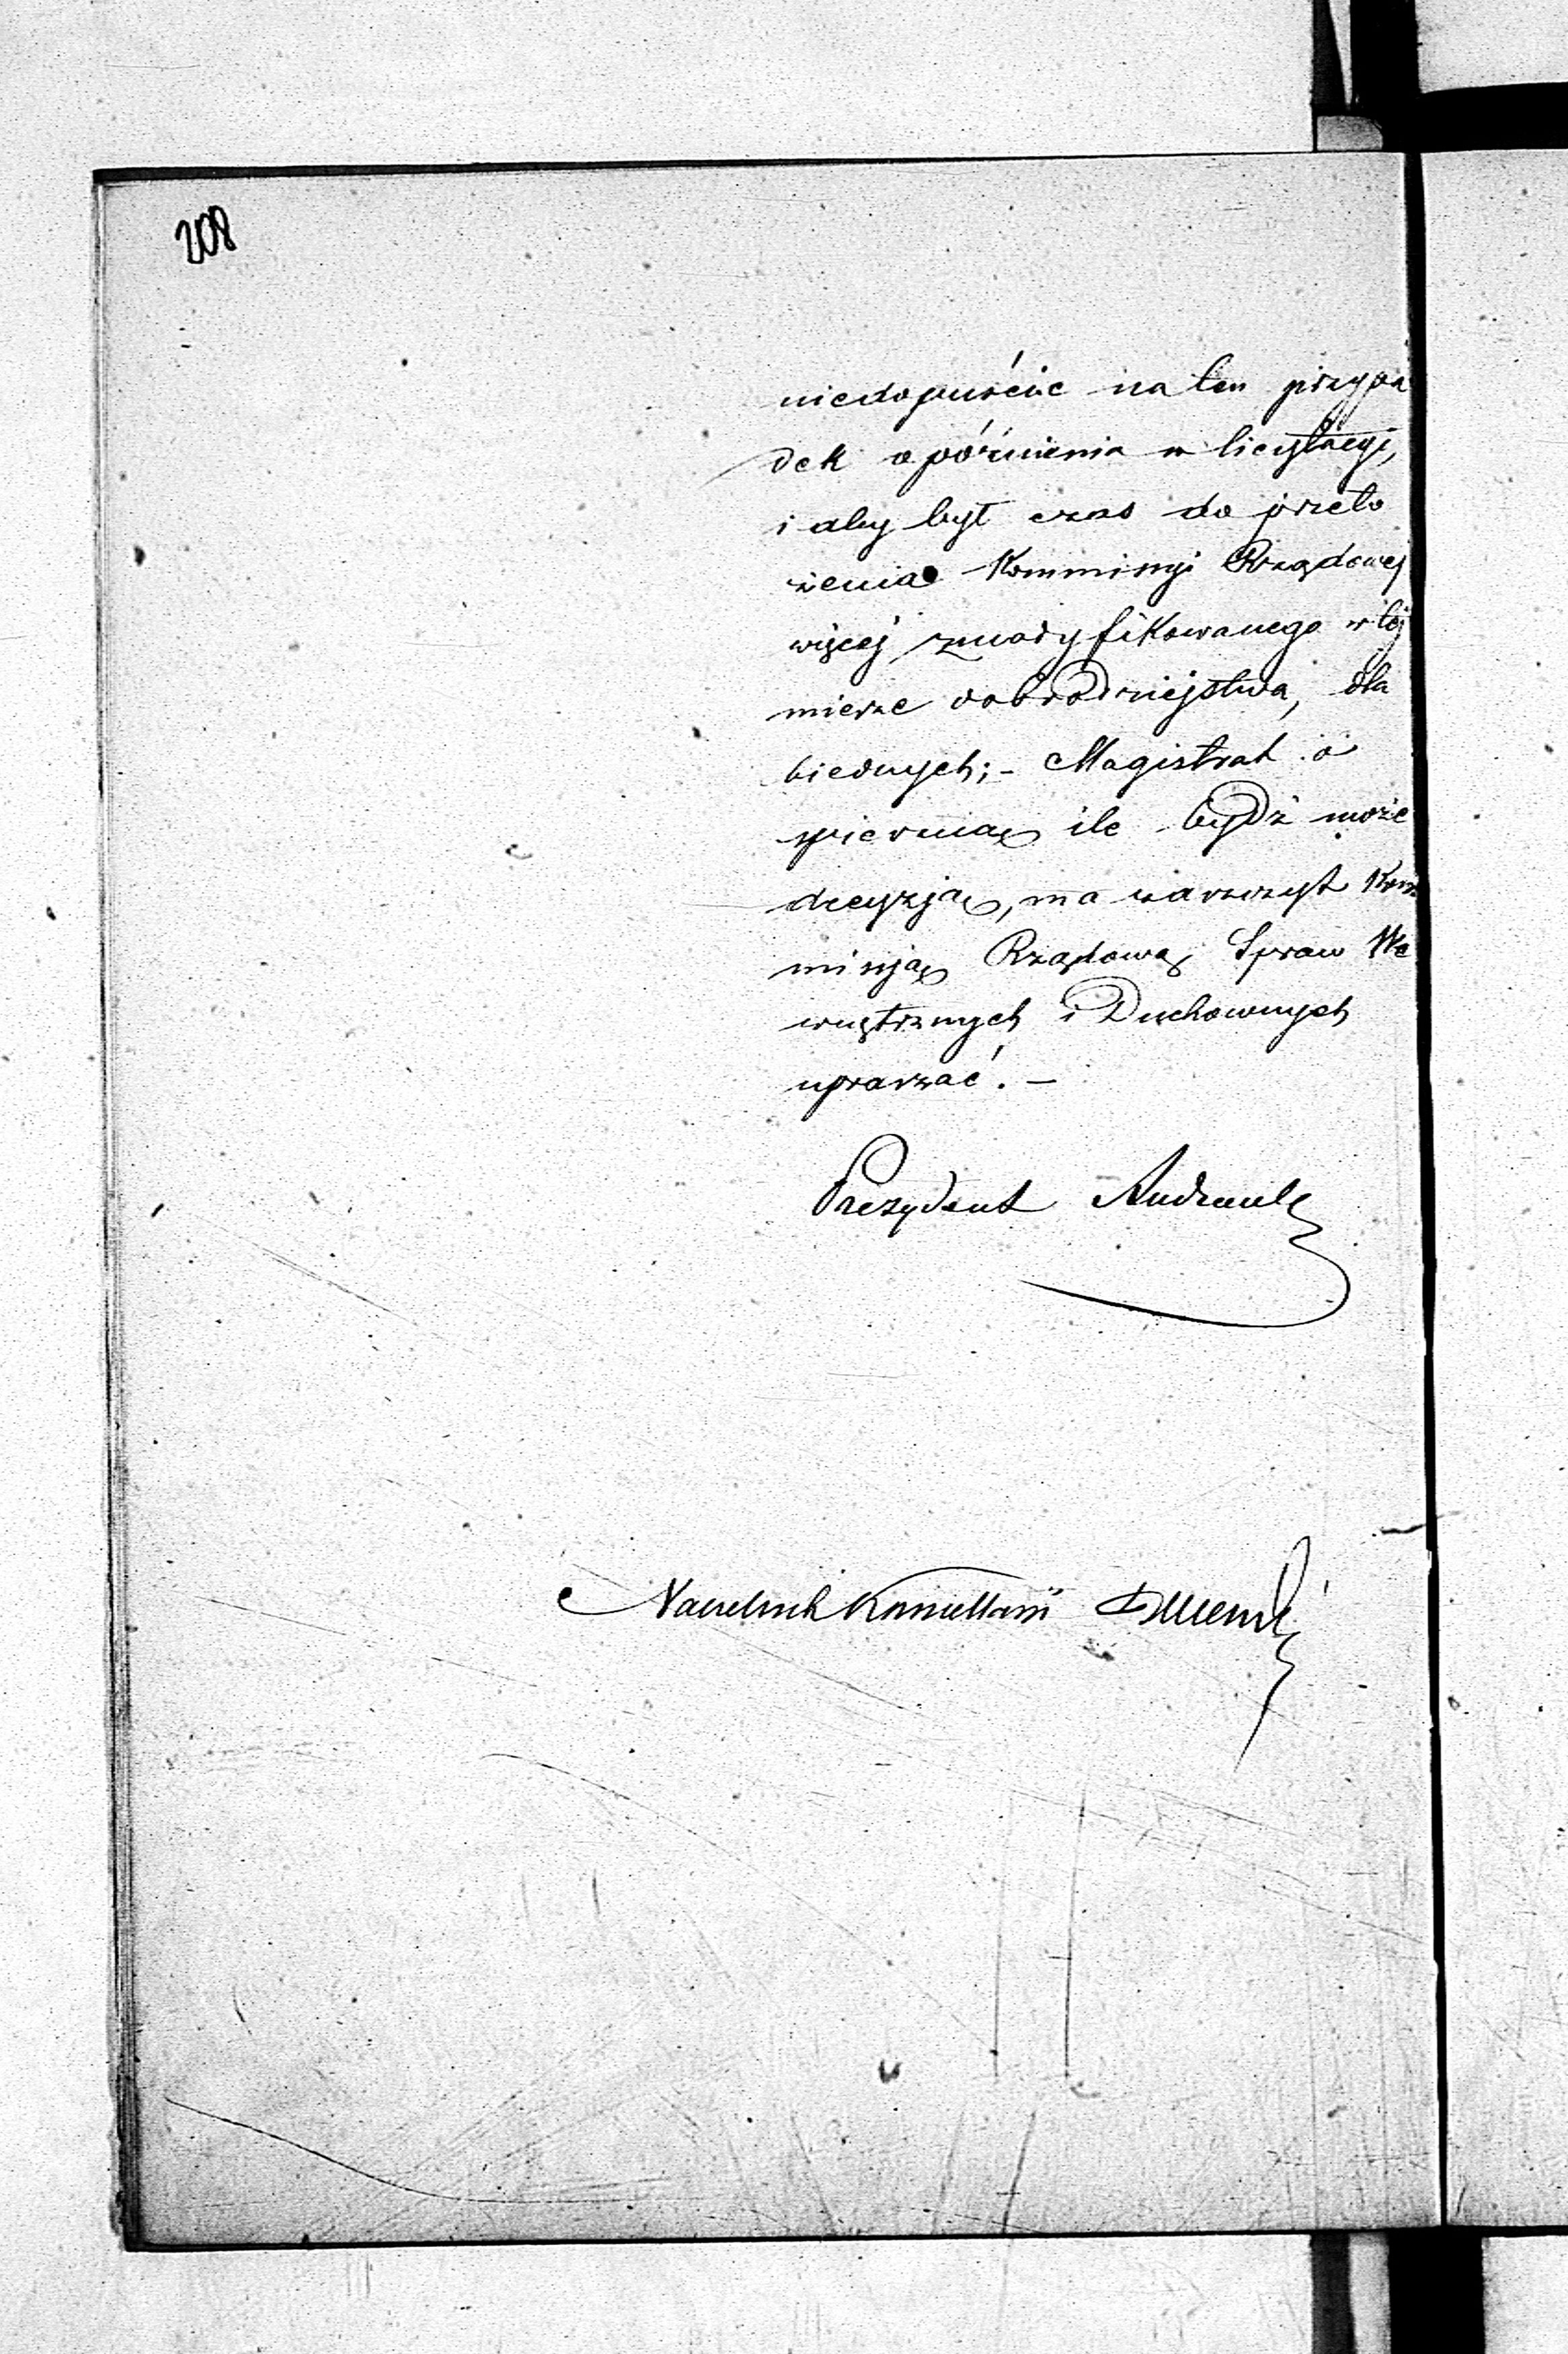 208
niedopuścić na ten przypa
dek opóźnienia w licytacyi,
i aby był czas do przeło
żenia Kommissyi Rządowej
więcej zmodyfikowanego w tej
mierze dobrodziejstwa, dla
biednych; - Magistrat o
śpieszną ile bydź może
decyzją, ma zaszczyt Kom
missją Rządową Spraw We
wnętrznych i Duchownych
upraszać. -
Prezydent Andrault
Naczelnik Kancellaryi